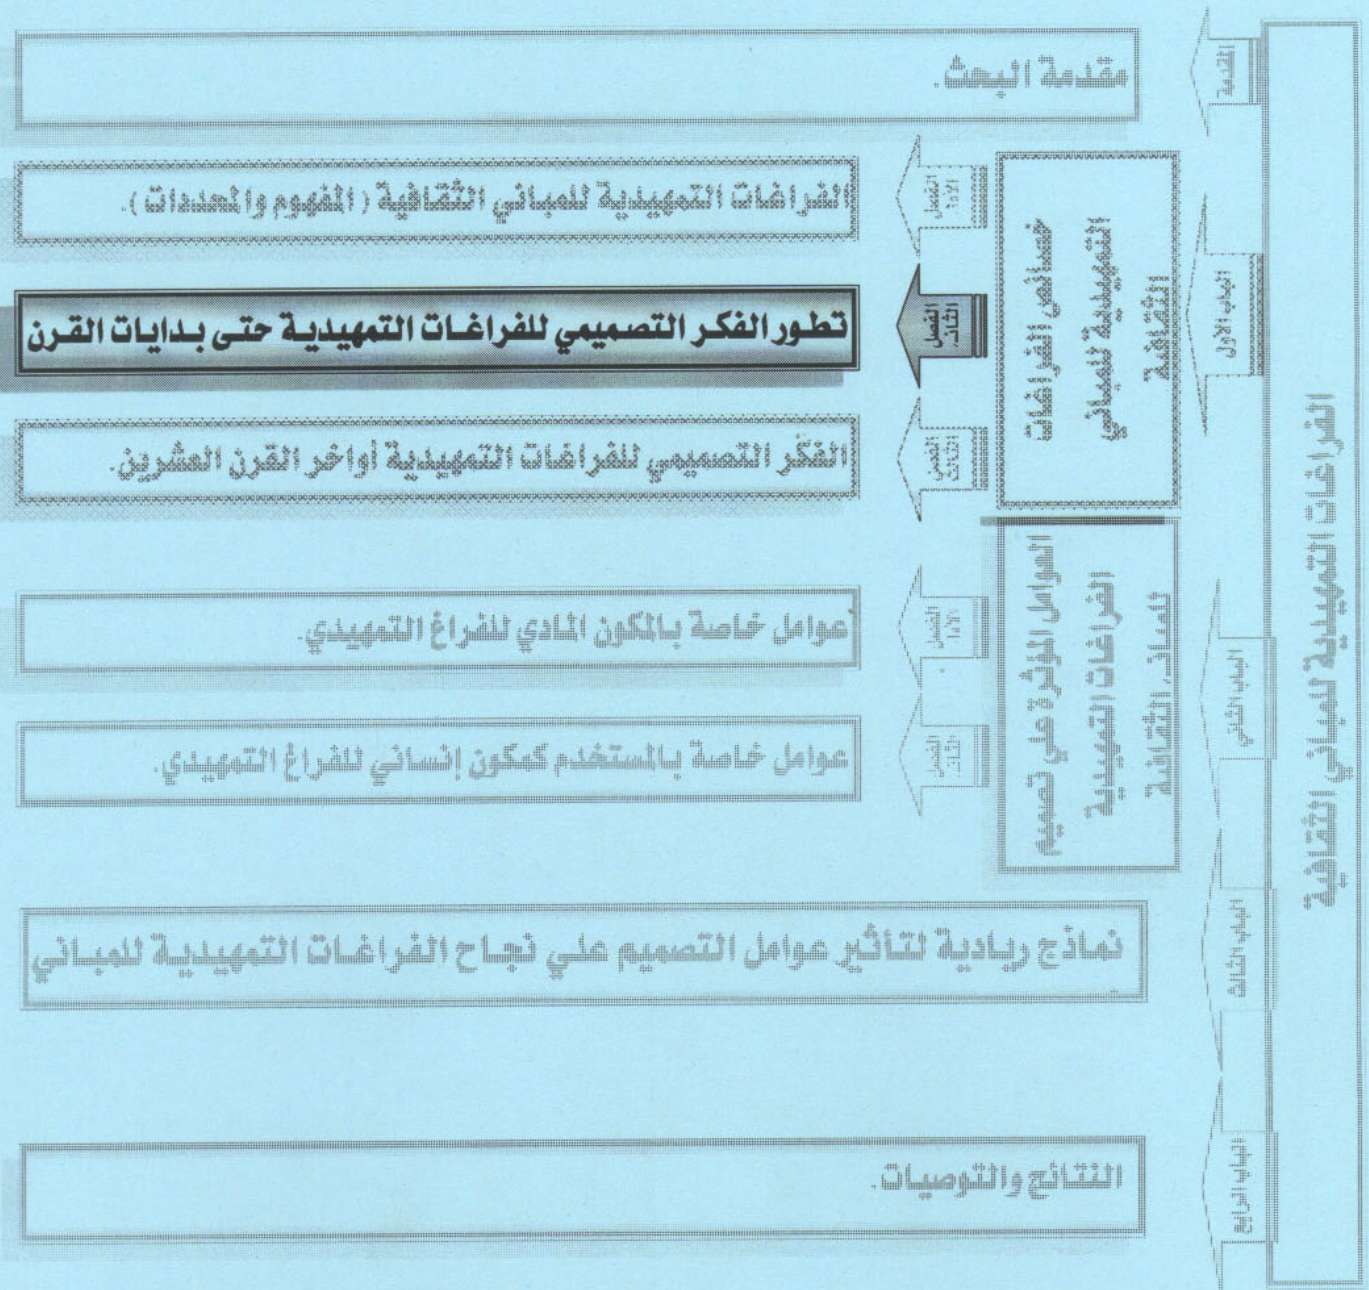 الفراغات التمهيدية للمباني الثقافية
المقدمة
مقدمة البحث.
الباب الأول
خصائص الفراغات
التمهيدية للمباني
الثقافية
الفصل
الأول
الفراغات التمهيدية للمباني الثقافية (المفهوم والمحددات).
الفصل
الثاني
تطور الفكر التصميمي للفراغات التمهيدية حتى بدايات القرن
الفصل
الثالث
الفكر التصميمي للفراغات التمهيدية أواخر القرن العشرين.
الباب الثاني
العوامل المؤثرة علي تصميم
الفراغات التمهيدية
للمباني الثقافية
الفصل
الأول
عوامل خاصة بالمكون المادي للفراغ التمهيدي.
الفصل
الثاني
عوامل خاصة بالمستخدم كمكون إنساني للفراغ التمهيدي.
الباب الثالث
نماذج ريادية لتأثير عوامل التصميم علي نجاح الفراغات التمهيدية للمباني
.
الباب الرابع
النتائج والتوصيات.